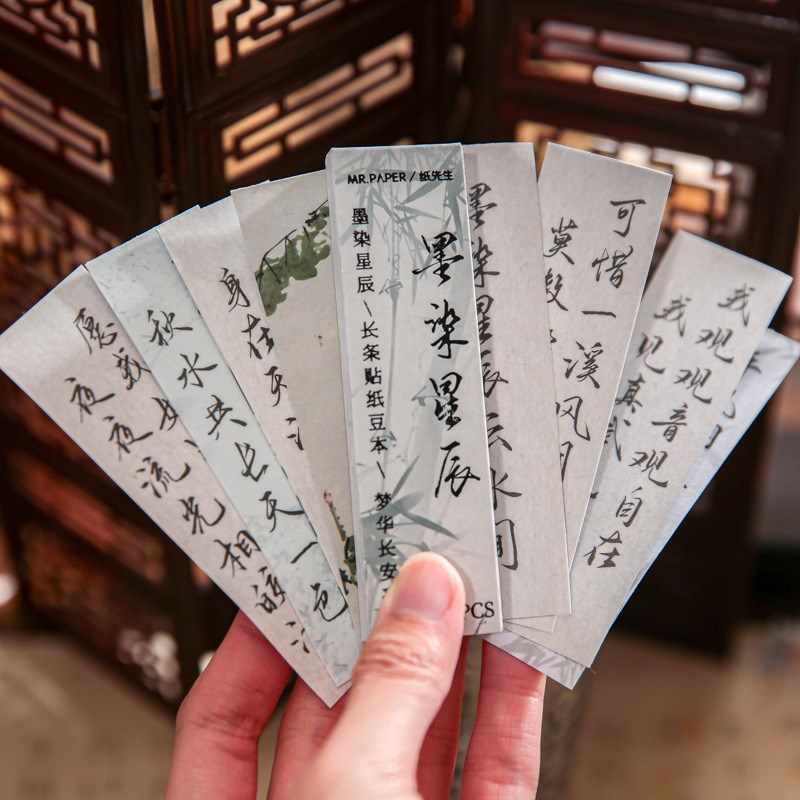 愿我
夜夜流光相皎
秋水共长天一色
身在
MR.PAPER / 纸先生
墨染星辰
墨染星辰\长条贴纸豆本\梦华长安
PCS
墨染星辰云水间
可惜一溪风月
莫
我观观音观自在
我见真